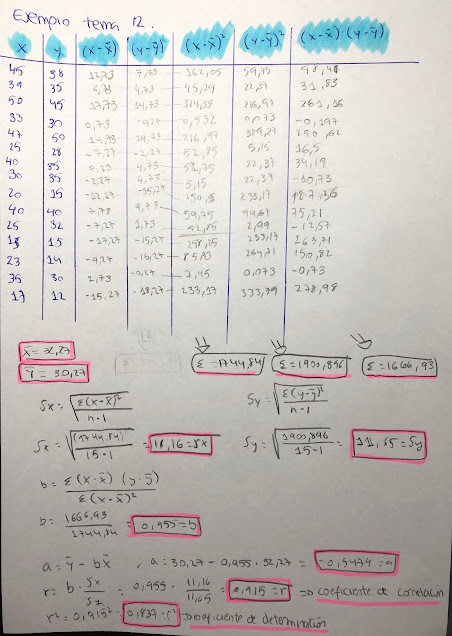 Ejemplo tema 12.
x y (x-x̄) (y-ȳ) (x-x̄)² (y-ȳ)² (x-x̄)·(y-ȳ)
45 38 12,73 7,73 162,05 59,75 98,41
39 35 6,73 4,73 45,29 22,37 31,83
50 45 17,73 14,73 314,35 216,97 261,16
33 30 0,73 -0,27 0,532 0,073 -0,197
47 50 14,73 19,73 216,97 389,27 290,62
25 28 -7,27 -2,27 52,85 5,15 16,5
40 35 7,73 4,73 59,75 22,37 34,19
30 35 -2,27 4,73 5,15 22,37 -10,73
20 15 -12,27 -15,27 150,5 233,17 187,36
40 40 7,73 9,73 59,75 94,67 75,21
25 32 -7,27 1,73 52,85 2,99 -12,57
15 15 -17,27 -15,27 298,25 233,17 263,71
23 14 -9,27 -16,27 85,93 264,71 150,82
35 30 2,73 -0,27 7,45 0,073 -0,73
17 12 -15,27 -18,27 233,17 333,79 278,98
x̄ = 32,27
Σ = 1744,84 Σ = 1900,896 Σ = 1666,93
ȳ = 30,27
Sx = √Σ(x-x̄)² / n-1 Sy = √Σ(y-ȳ)² / n-1
Sx = √(1744,84) / 15-1 = 11,16 = Sx Sy = √1900,896 / 15-1 = 11,65 = Sy
b = Σ(x-x̄)(y-ȳ) / Σ(x-x̄)²
b = 1666,93 / 1744,84 = 0,955 = b
a = ȳ - bx̄ ; a = 30,27 - 0,955 · 32,27 = -0,5479 = a
r = b · Sx / Sy = 0,955 · 11,16 / 11,65 = 0,915 = r ⇒ coeficiente de correlación
r² = 0,915² = 0,837 = r² ⇒ coeficiente de determinación